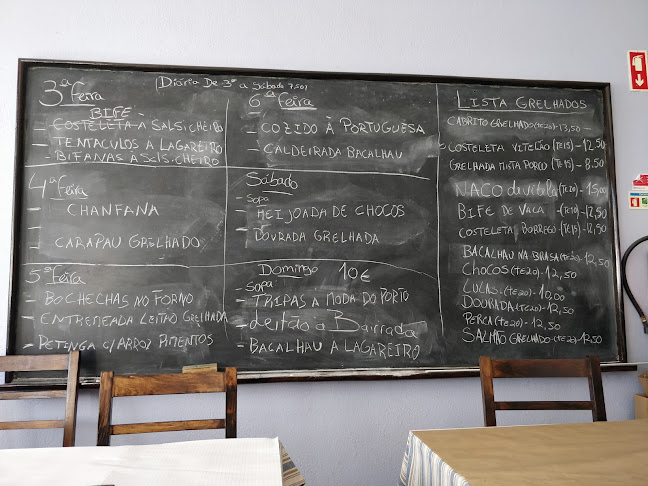 Diária De 3ª a Sábado 7,50
3ª Feira
BIFE
- COSTELETA A SALSICHEIRO
- TENTACULOS A LAGAREIRO
- BIFANAS A SALSICHEIRO
4ª Feira
- CHANFANA
- CARAPAU GRELHADO
5ª Feira
- BOCHECHAS NO FORNO
- ENTREMEADA LEITÃO GRELHADA
- PETENGA C/ARROZ PIMENTOS
6ª Feira
- COZIDO À PORTUGUESA
- CALDEIRADA BACALHAU
Sábado
- SOPA
- FEIJOADA DE CHOCOS
- DOURADA GRELHADA
Domingo 10€
- SOPA
- TRIPAS A MODA DO PORTO
- Leitão a Bairrada
- BACALHAU A LAGAREIRO
LISTA GRELHADOS
CABRITO GRELHADO (TE20) - 13,50
COSTELETA VITELÃO (TE15) - 12,50
GRELHADA MISTA PORCO (TE15) - 8,50
NACO de vitela (TE20) - 15,00
BIFE DE VACA - (TE10) - 12,50
COSTELETA BORREGO (TE15) - 12,50
BACALHAU NA BRASA (TE20) - 12,50
CHOCOS (TE20) - 12,50
LULAS (TE20) - 10,00
DOURADA (TE20) - 12,50
PERCA (TE20) - 12,50
SALMÃO GRELHADO (TE20) 12,50